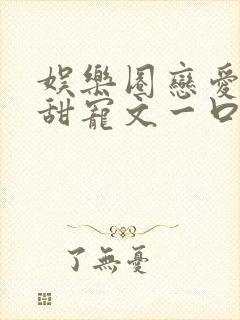 娛樂圈戀愛
甜寵文一口
了無憂